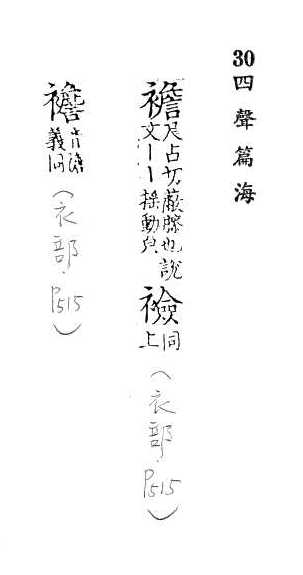 30四聲篇海
襜尺占切蔽膝也說文丨丨搖動皃襝同上(衣部.P515)
義同(衣部.P515)